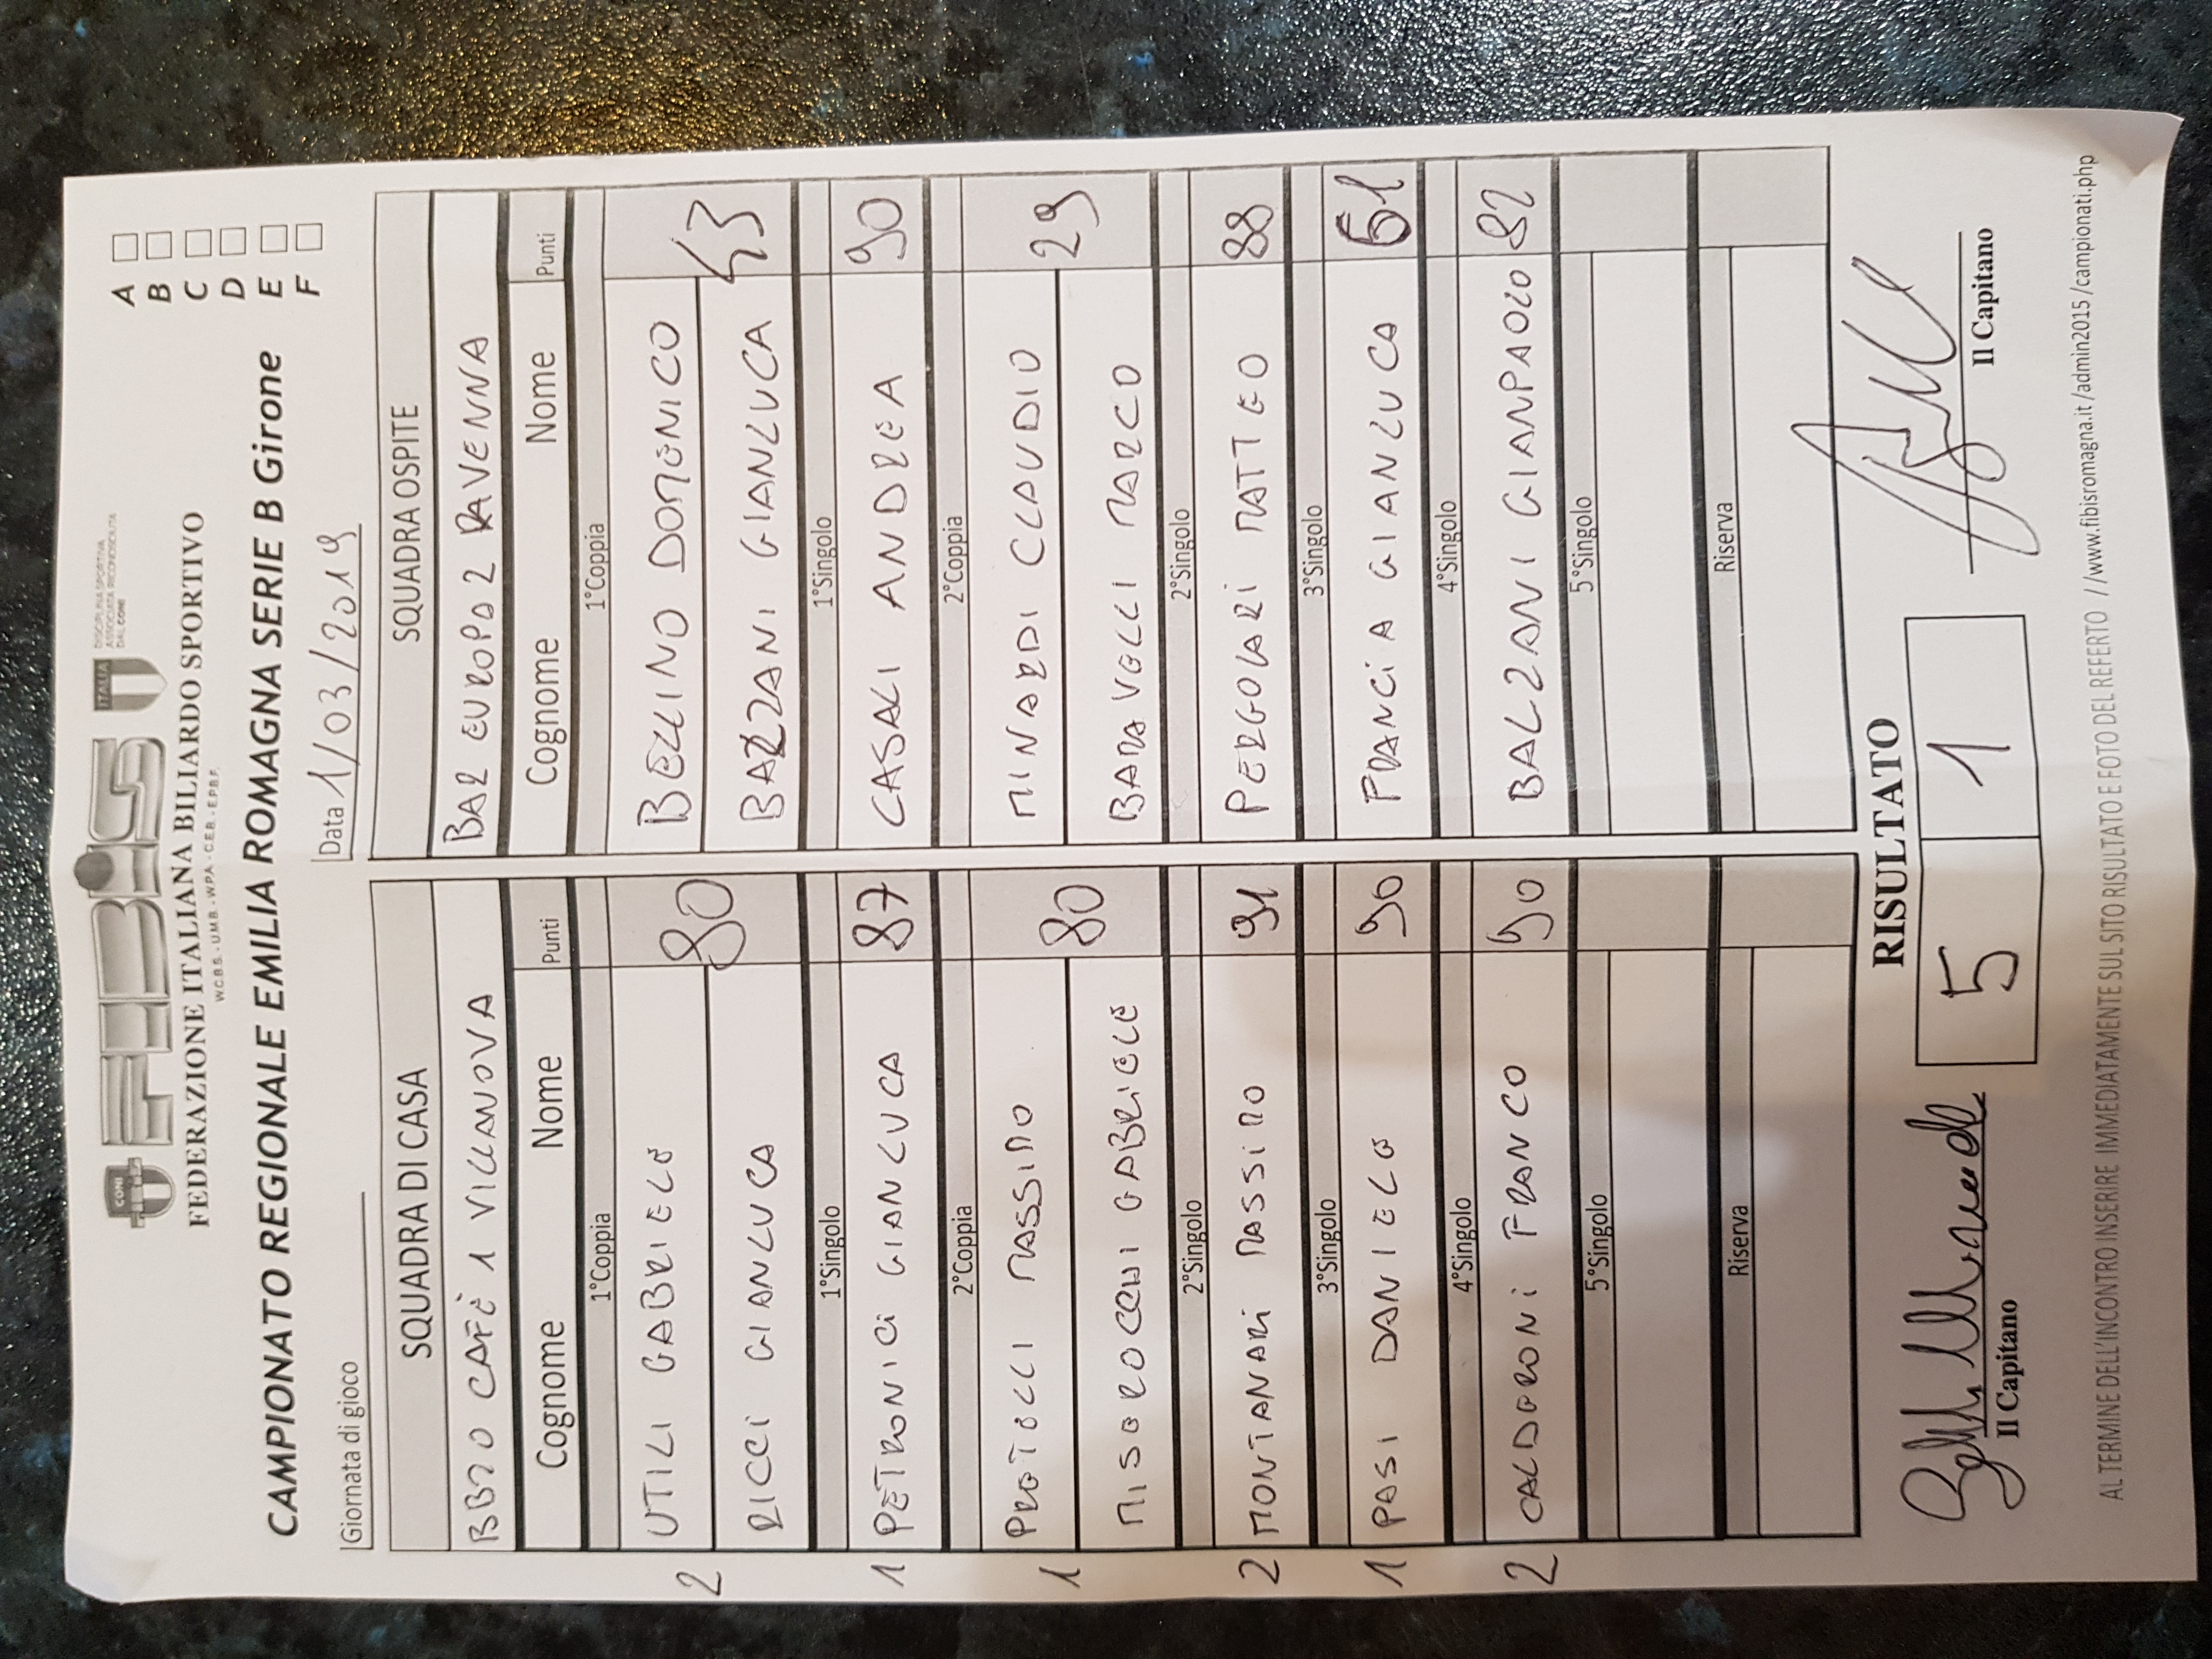 CONI FIBiS ITALIA DISCIPLINA SPORTIVA
ASSOCIATA RICONOSCIUTA
DAL CONI
FEDERAZIONE ITALIANA BILIARDO SPORTIVO
W.C.B.S. - U.M.B. - W.P.A. - C.E.B. - E.P.B.F.
CAMPIONATO REGIONALE EMILIA ROMAGNA SERIE B Girone
A
B
C
D
E
F
Giornata di gioco Data 1/03/2019
SQUADRA DI CASA SQUADRA OSPITE
BBZO CAFÈ 1 VILLANOVA BAR EUROPA 2 RAVENNA
Cognome Nome Punti Cognome Nome Punti
1°Coppia 1°Coppia
2 UTILI GABRIELE 80 BELLINO DOMENICO 43
RICCI GIANLUCA BALZANI GIANLUCA
1°Singolo 1°Singolo
1 PETRONICI GIANLUCA 87 CASALI ANDREA 90
2°Coppia 2°Coppia
1 PROTELLI MASSIMO 80 MINARDI CLAUDIO 29
MISEROCCHI GABRIELE BARAVELLI MARCO
2°Singolo 2°Singolo
2 MONTANARI MASSIMO 91 PERGOLARI MATTEO 88
3°Singolo 3°Singolo
1 PASI DANIELE 90 FRANCIA GIANLUCA 61
4°Singolo 4°Singolo
2 CALDERONI FRANCO 90 BALZANI GIANPAOLO 82
5°Singolo 5°Singolo
Riserva Riserva
RISULTATO
5 1
Il Capitano Il Capitano
AL TERMINE DELL'INCONTRO INSERIRE IMMEDIATAMENTE SUL SITO RISULTATO E FOTO DEL REFERTO //www.fibisromagna.it/admin2015/campionati.php